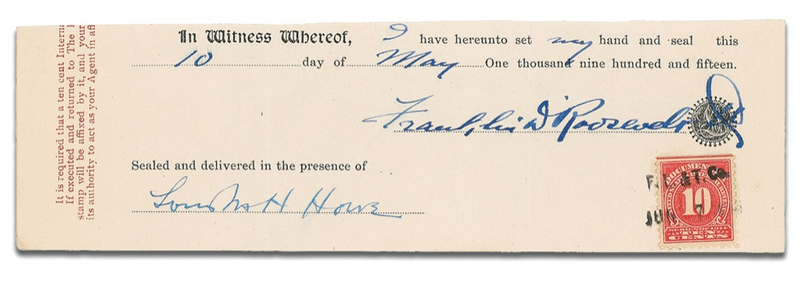 In Witness Whereof, I have hereunto set my hand and seal this
10 day of May One thousand nine hundred and fifteen.
Franklin D Roosevelt
Sealed and delivered in the presence of
Louis McH Howe
It is required that a ten cent Interna
If executed and returned to The
stamp will be affixed by it, and your
its authority to act as your Agent in aff
DOCUMENT
10
TEN
CENTS
Co.
JUN